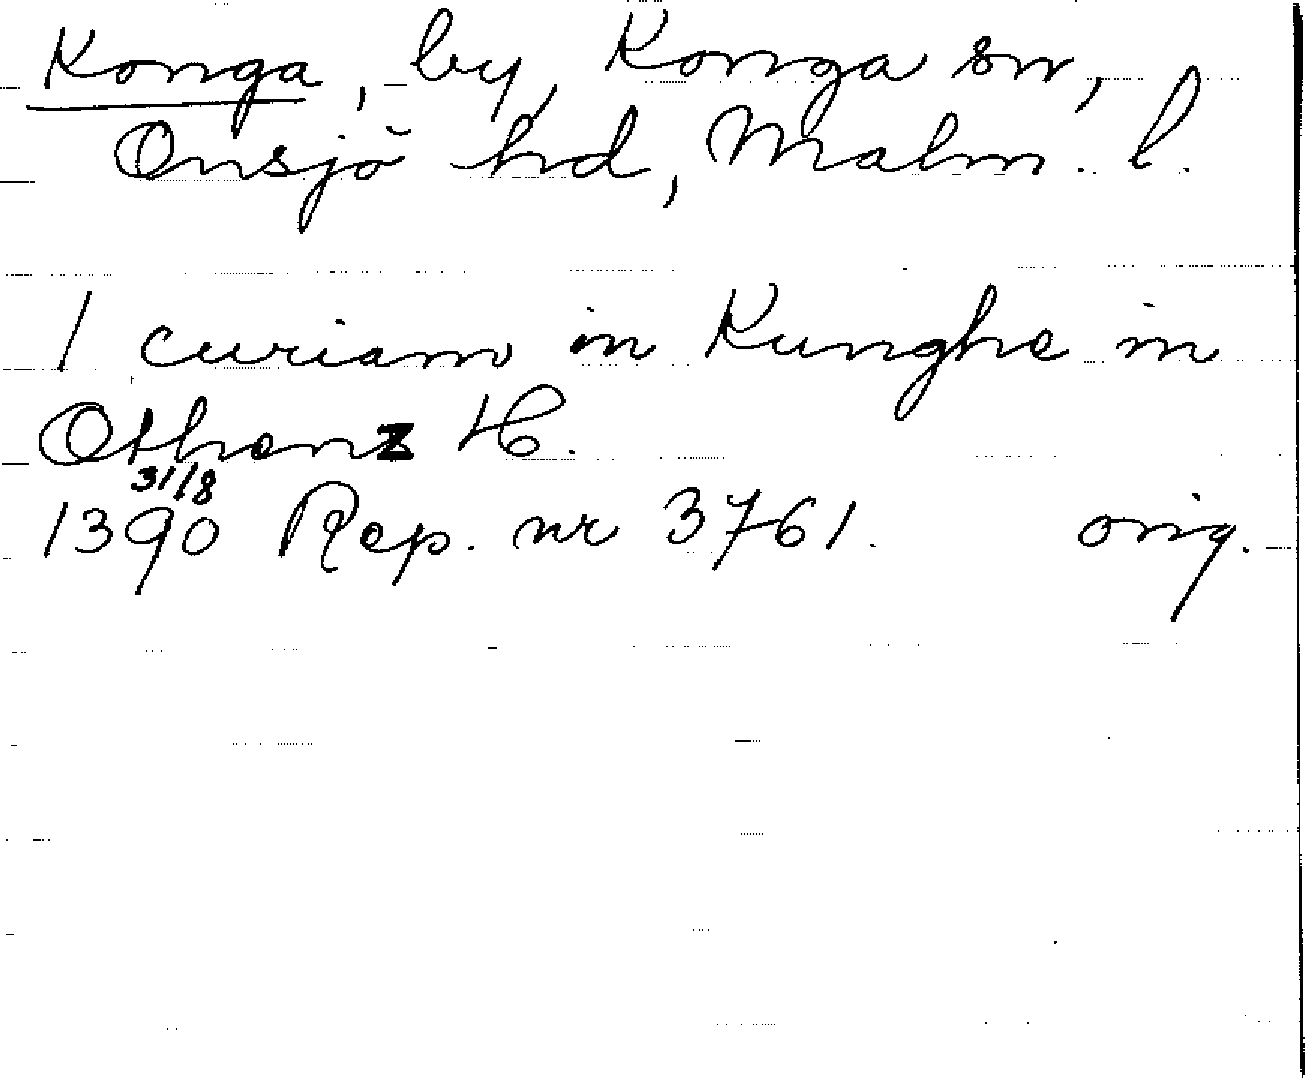 Konga, by, Konga sn,
Onsjö hd, Malm. l.
1 curiam in Kunghe in
Othenz H.
31/8
1390 Rep. nr 3761. orig.